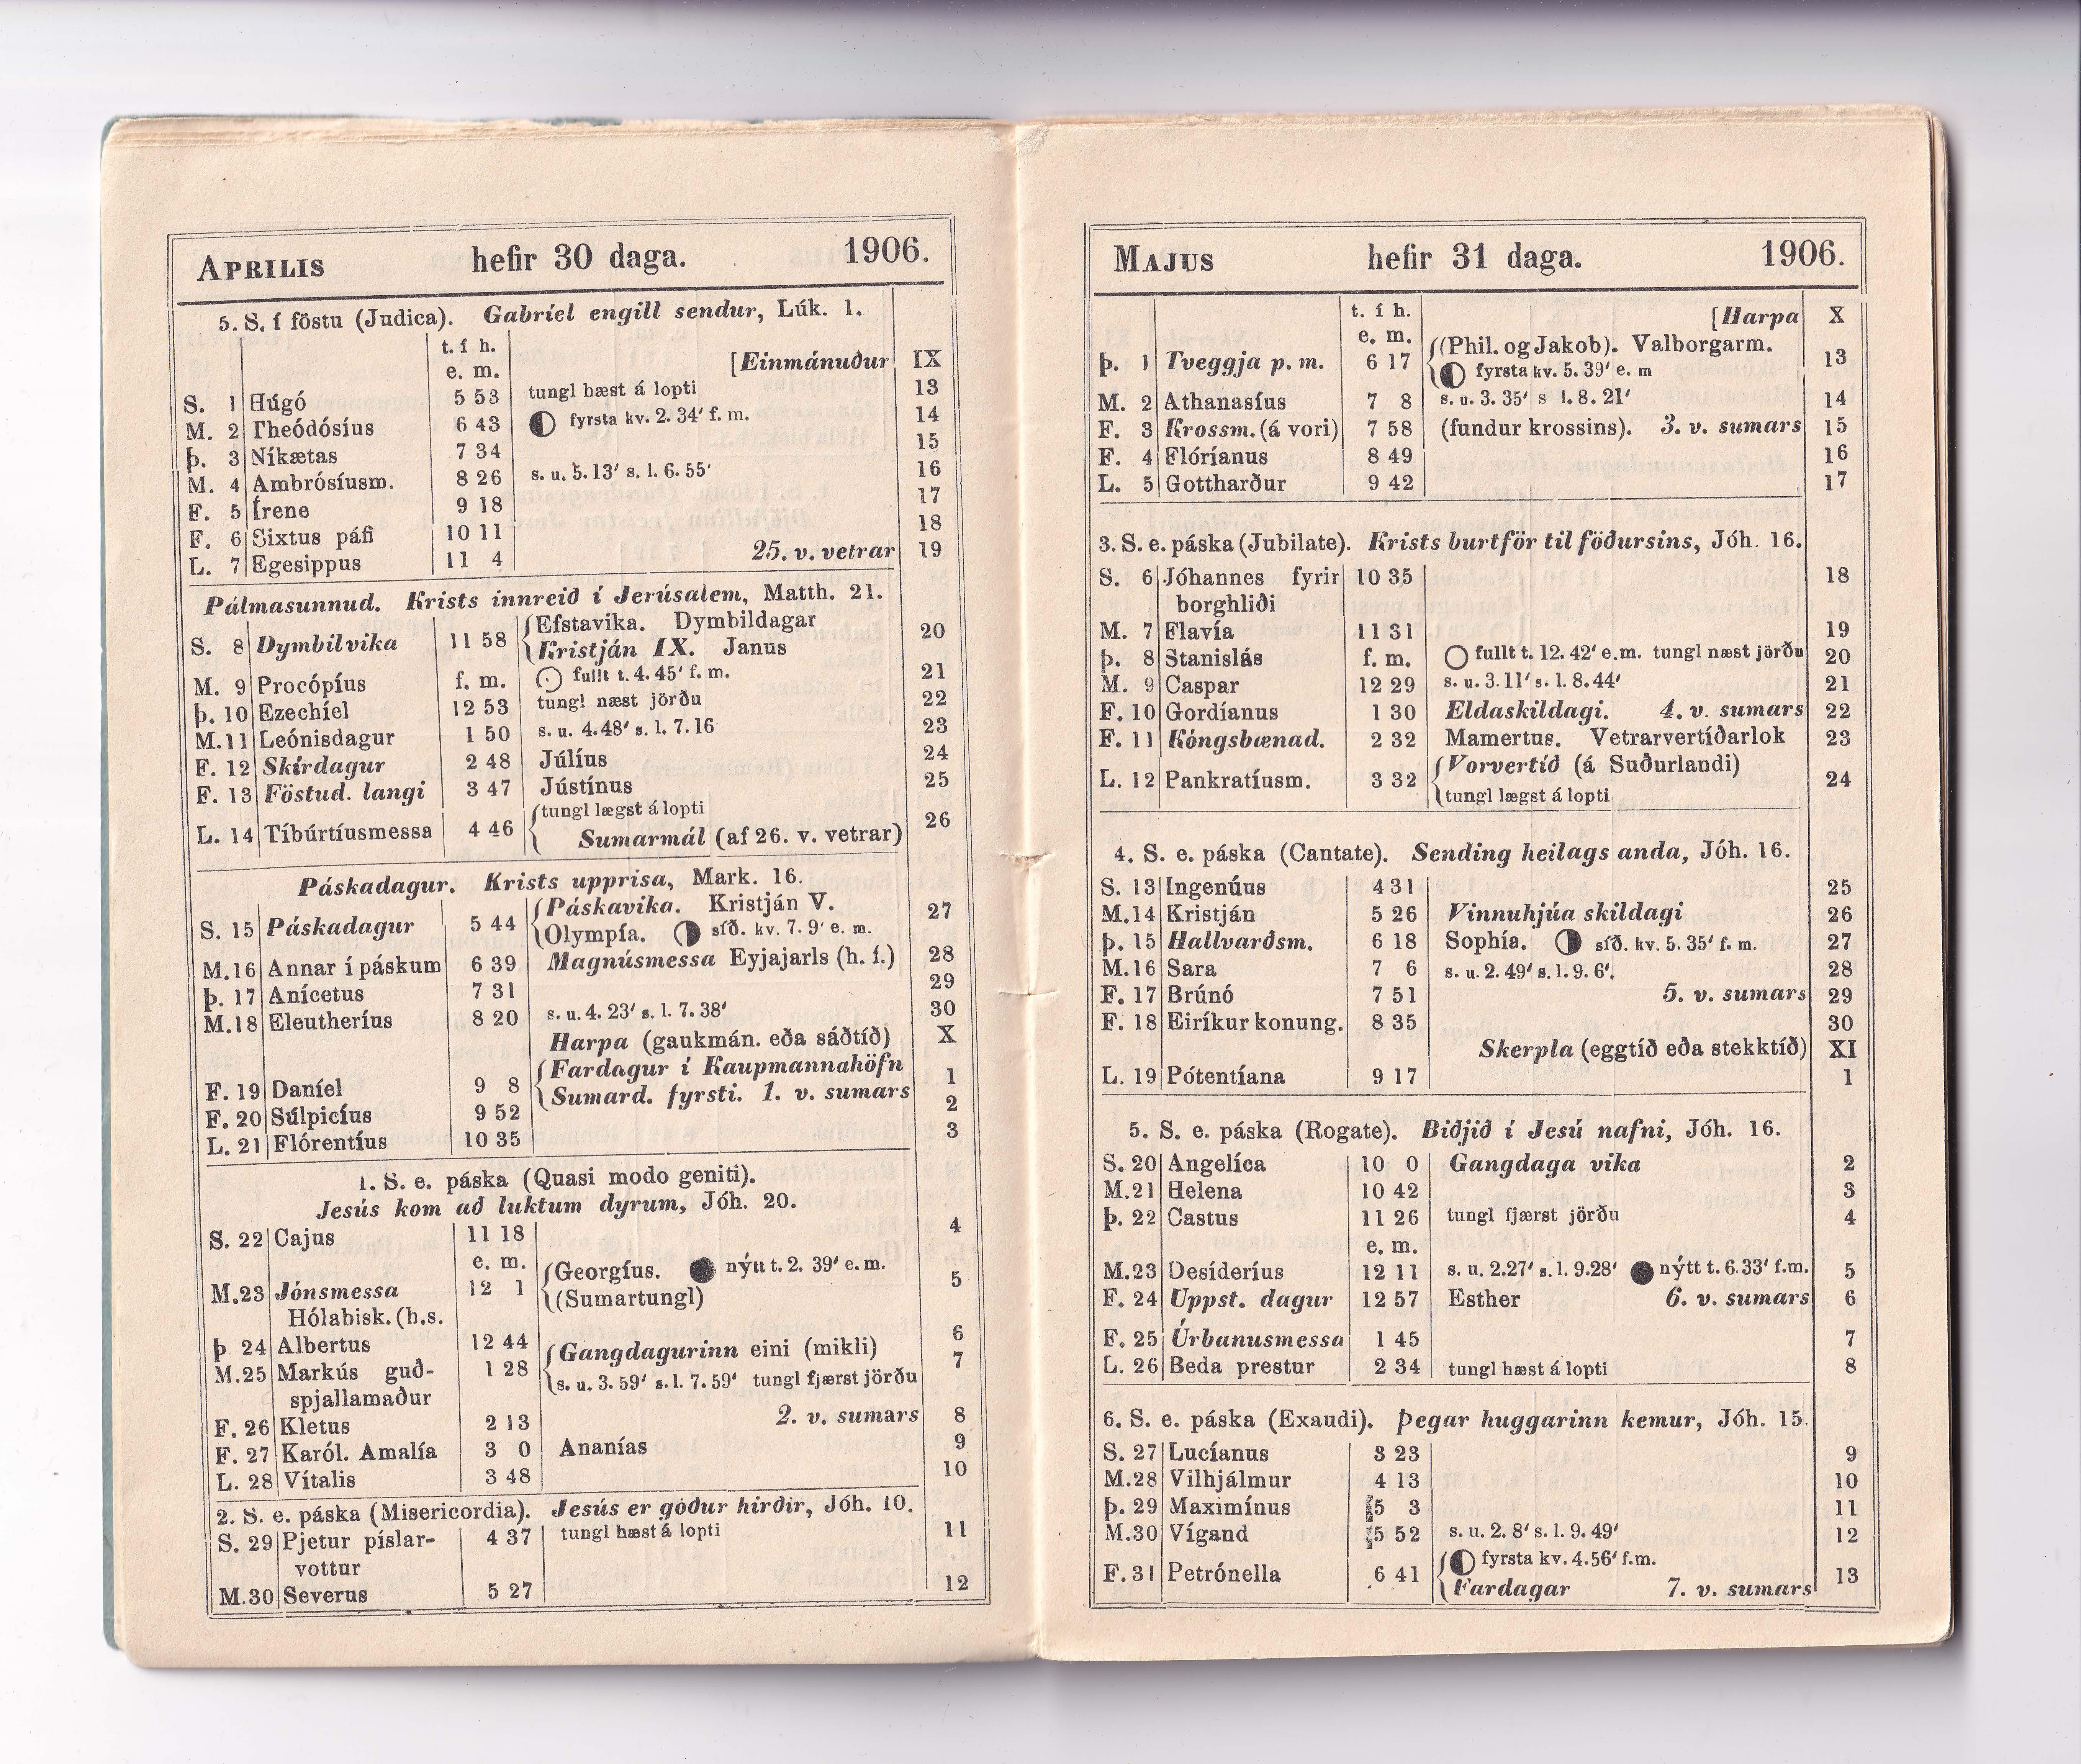 APRILIS hefir 30 daga. 1906.
5. S. í föstu (Judica). Gabríel engill sendur, Lúk. 1.
t. í h.
e. m. [Einmánuður IX
S. 1 Húgó 5 53 tungl hæst á lopti 13
M. 2 Theódósíus 6 43 fyrsta kv. 2. 34′ f. m. 14
Þ. 3 Níkætas 7 34 15
M. 4 Ambrósíusm. 8 26 s. u. 5. 13′ s. l. 6. 55′ 16
F. 5 Írene 9 18 17
F. 6 Sixtus páfi 10 11 18
L. 7 Egesippus 11 4 25. v. vetrar 19
Pálmasunnud. Krists innreið í Jerúsalem, Matth. 21.
S. 8 Dymbilvika 11 58 Efstavika. Dymbildagar 20
Kristján IX. Janus
M. 9 Procópíus f. m. fullt t. 4. 45′ f. m. 21
Þ. 10 Ezechíel 12 53 tungl næst jörðu 22
M. 11 Leónisdagur 1 50 s. u. 4. 48′ s. l. 7. 16 23
F. 12 Skírdagur 2 48 Júlíus 24
F. 13 Föstud. langi 3 47 Jústínus 25
L. 14 Tíbúrtíusmessa 4 46 tungl lægst á lopti 26
Sumarmál (af 26. v. vetrar)
Páskadagur. Krists upprisa, Mark. 16.
S. 15 Páskadagur 5 44 Páskavika. Kristján V. 27
Olympía. síð. kv. 7. 9′ e. m.
M. 16 Annar í páskum 6 39 Magnúsmessa Eyjajarls (h. f.) 28
Þ. 17 Anícetus 7 31 29
M. 18 Eleutheríus 8 20 s. u. 4. 23′ s. l. 7. 38′ 30
Harpa (gaukmán. eða sáðtíð) X
F. 19 Daníel 9 8 Fardagur í Kaupmannahöfn 1
Sumard. fyrsti. 1. v. sumars
F. 20 Súlpicíus 9 52 2
L. 21 Flórentíus 10 35 3
1. S. e. páska (Quasi modo geniti).
Jesús kom að luktum dyrum, Jóh. 20.
S. 22 Cajus 11 18 4
e. m.
M. 23 Jónsmessa 12 1 Georgíus. nýtt t. 2. 39′ e. m. 5
Hólabisk. (h.s. (Sumartungl)
Þ 24 Albertus 12 44 6
M. 25 Markús guð- 1 28 Gangdagurinn eini (mikli) 7
spjallamaður s. u. 3. 59′ s. l. 7. 59′ tungl fjærst jörðu
F. 26 Kletus 2 13 2. v. sumars 8
F. 27 Karól. Amalía 3 0 Ananías 9
L. 28 Vítalis 3 48 10
2. S. e. páska (Misericordia). Jesús er góður hirðir, Jóh. 10.
S. 29 Pjetur píslar- 4 37 tungl hæst á lopti 11
vottur
M. 30 Severus 5 27 12
MAJUS hefir 31 daga. 1906.
t. í h. [Harpa X
e. m.
Þ. 1 Tveggja p. m. 6 17 (Phil. og Jakob). Valborgarm. 13
fyrsta kv. 5. 39′ e. m
M. 2 Athanasíus 7 8 s. u. 3. 35′ s l. 8. 21′ 14
F. 3 Krossm. (á vori) 7 58 (fundur krossins). 3. v. sumars 15
F. 4 Flóríanus 8 49 16
L. 5 Gottharður 9 42 17
3. S. e. páska (Jubilate). Krists burtför til föðursins, Jóh. 16.
S. 6 Jóhannes fyrir 10 35 18
borghliði
M. 7 Flavía 11 31 19
Þ. 8 Stanislás f. m. fullt t. 12. 42′ e. m. tungl næst jörðu 20
M. 9 Caspar 12 29 s. u. 3. 11′ s. l. 8. 44′ 21
F. 10 Gordíanus 1 30 Eldaskildagi. 4. v. sumars 22
F. 11 Kóngsbænad. 2 32 Mamertus. Vetrarvertíðarlok 23
L. 12 Pankratíusm. 3 32 Vorvertíð (á Suðurlandi) 24
tungl lægst á lopti
4. S. e. páska (Cantate). Sending heilags anda, Jóh. 16.
S. 13 Ingenúus 4 31 25
M. 14 Kristján 5 26 Vinnuhjúa skildagi 26
Þ. 15 Hallvarðsm. 6 18 Sophía. síð. kv. 5. 35′ f. m. 27
M. 16 Sara 7 6 s. u. 2. 49′ s. l. 9. 6′. 28
F. 17 Brúnó 7 51 5. v. sumars 29
F. 18 Eiríkur konung. 8 35 30
Skerpla (eggtíð eða stekktíð) XI
L. 19 Pótentíana 9 17 1
5. S. e. páska (Rogate). Biðjið í Jesú nafni, Jóh. 16.
S. 20 Angelíca 10 0 Gangdaga vika 2
M. 21 Helena 10 42 3
Þ. 22 Castus 11 26 tungl fjærst jörðu 4
e. m.
M. 23 Desíderíus 12 11 s. u. 2.27′ s. l. 9.28′ nýtt t. 6.33′ f.m. 5
F. 24 Uppst. dagur 12 57 Esther 6. v. sumars 6
F. 25 Úrbanusmessa 1 45 7
L. 26 Beda prestur 2 34 tungl hæst á lopti 8
6. S. e. páska (Exaudi). Þegar huggarinn kemur, Jóh. 15.
S. 27 Lucíanus 3 23 9
M. 28 Vilhjálmur 4 13 10
Þ. 29 Maximínus 5 3 11
M. 30 Vígand 5 52 s. u. 2. 8′ s. l. 9. 49′ 12
F. 31 Petrónella 6 41 fyrsta kv. 4.56′ f.m. 13
Fardagar 7. v. sumars